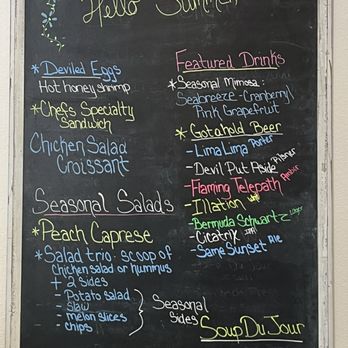 Hello Summer
* Deviled Eggs
Hot honey shrimp
* Chefs Specialty
Sandwich
Chicken Salad
Croissant
Seasonal Salads
* Peach Caprese
* Salad trio: scoop of
chicken salad or hummus
+ 2 sides
- Potato salad
- slaw
- melon slices
- chips
Seasonal
Sides
Featured Drinks
* Seasonal Mimosa:
Seabreeze - Cranberry
Pink Grapefruit
* Gotahold Beer
- Lima Lima Porter
- Devil Put Aside Pilsner
- Flaming Telepath Amber
- Illation
- Bermuda Schwartz Lager
- Cicatrix IPA
- Same Sunset Ale
Soup Du Jour